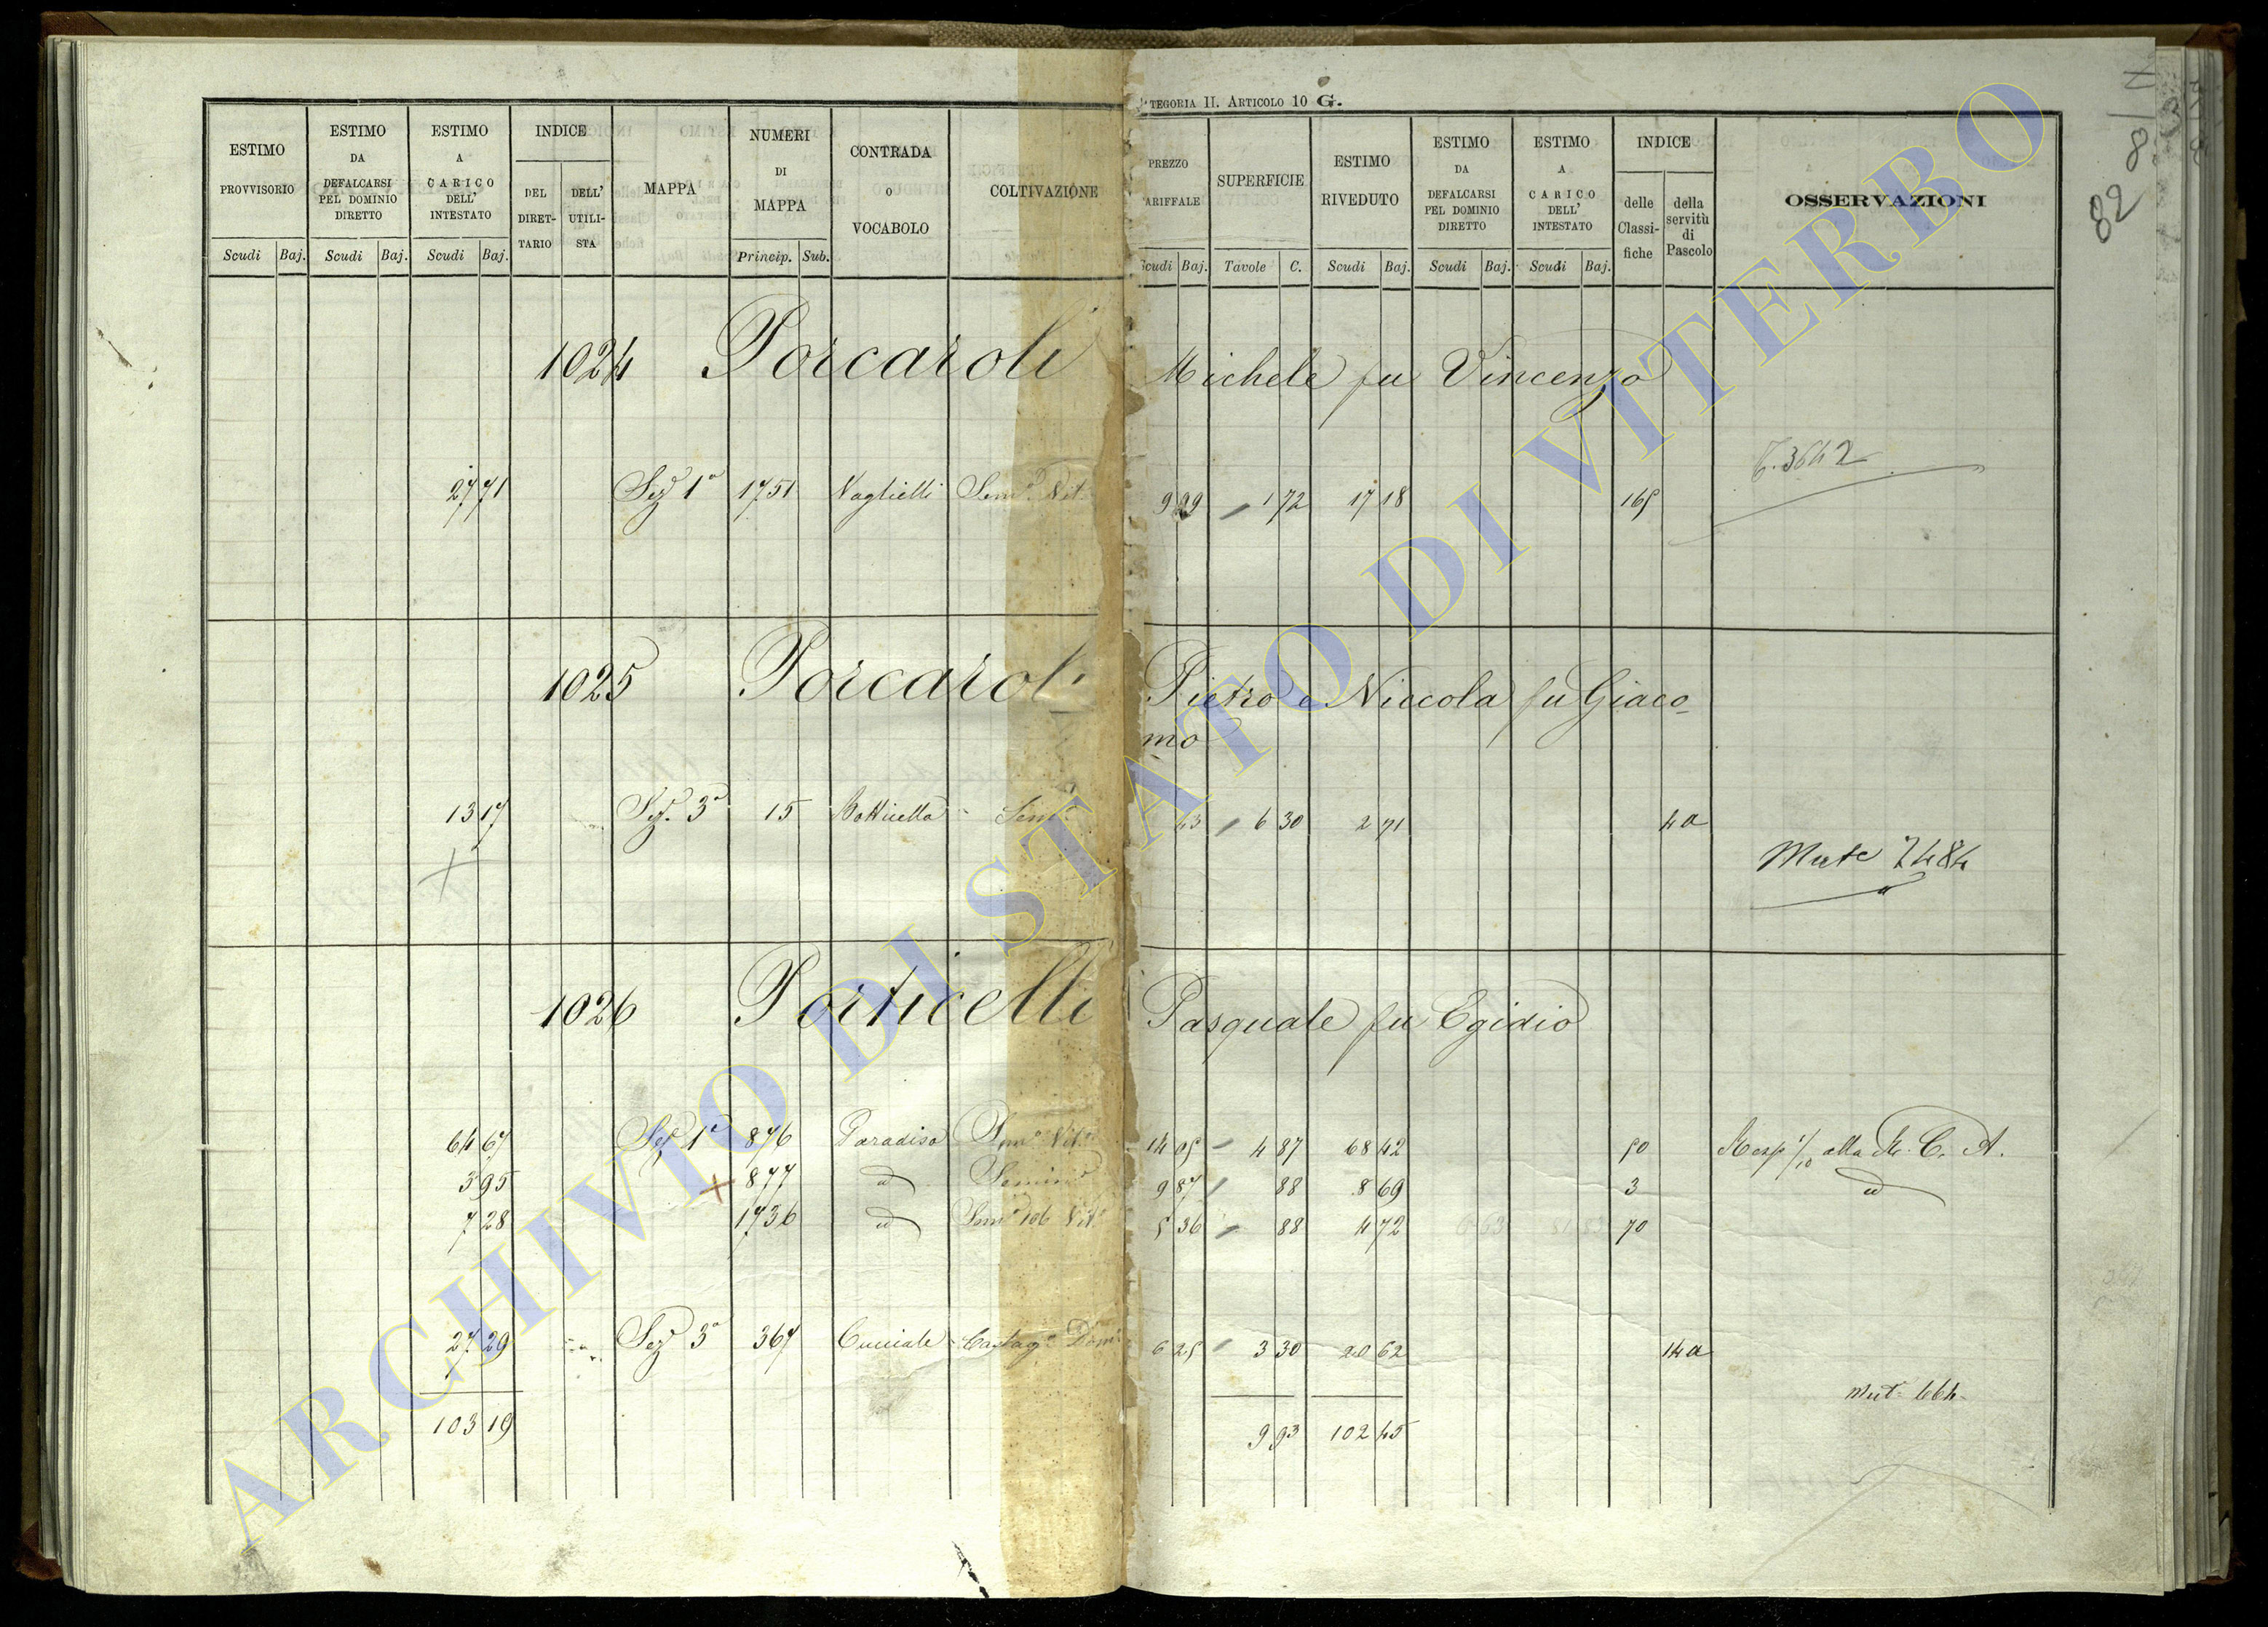 CATEGORIA II. ARTICOLO 10 G.
82 8/N
ESTIMO PROVVISORIO Scudi Baj. ESTIMO DA DEFALCARSI PEL DOMINIO DIRETTO Scudi Baj. ESTIMO A CARICO DELL' INTESTATO Scudi Baj. INDICE DEL DIRET-TARIO DELL' UTILI-STA MAPPA NUMERI DI MAPPA Princip. Sub. CONTRADA o VOCABOLO COLTIVAZIONE
PREZZO TARIFFALE Scudi Baj. SUPERFICIE Tavole C. ESTIMO RIVEDUTO Scudi Baj. ESTIMO DA DEFALCARSI PEL DOMINIO DIRETTO Scudi Baj. ESTIMO A CARICO DELL' INTESTATO Scudi Baj. INDICE delle Classi-fiche della servitù di Pascolo OSSERVAZIONI
1024 Porcaroli Michele fu Vincenzo
27 71 Sez 1a 1751 Naglielli Semo Vit. 9 99 1 72 17 18 165
3642
1025 Porcaroli Pietro e Niccola fu Giaco-
mo
13 17 Sez. 3a 15 Botticella Semo 43 6 30 2 71 4a
Mute 7484
1026 Porticelli Pasquale fu Egidio
64 67 Sez 1a 876 Paradiso Semo Vito 14 05 4 87 68 42 50 Resp 1/10 alla R. C. A.
3 95 877 id 9 87 88 8 69 3 id
7 28 1736 id Semo Vito 5 36 88 4 72 70
27 29 Sez 3a 367 Cucciale Castago Domo 6 25 3 30 20 62 14a
103 19 9 93 102 45
ARCHIVIO DI STATO DI VITERBO